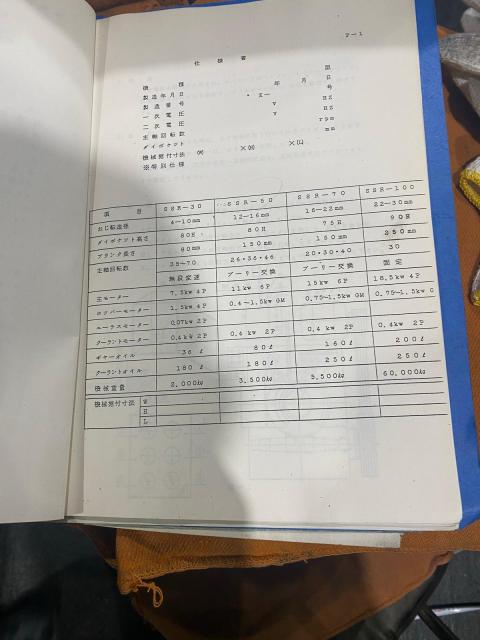 P-1
仕 様 書
機 種 型
製造年月日 年 月 日
製造番号 号
一次電圧 V HZ
二次電圧 V HZ
主軸回転数 rpm
ダイポケット mm
機械据付寸法 (W) ×(H) ×(L)
※特別仕様
項 目 SSR-30 SSR-50 SSR-70 SSR-100
ねじ転造径 4~10mm 12~16mm 16~22mm 22~30mm
ダイポケット高さ 80H 80H 75H 90H
ブランク長さ 80mm 150mm 150mm 250mm
主軸回転数 35~70 26・36・46 20・30・40 30
無段変速 プーリー交換 プーリー交換 固定
主モーター 7.5kw 4P 11kw 6P 15kw 6P 18.5kw 4P
ホッパーモーター 1.5kw 4P 0.4~1.5kw GM 0.75~1.5kw GM 0.75~1.5kw G
ルーラスモーター 0.07kw 2P
クーラントモーター 0.4kw 2P 0.4kw 2P 0.4kw 2P 0.4kw 2P
ギヤーオイル 36ℓ 80ℓ 160ℓ 200ℓ
クーラントオイル 180ℓ 180ℓ 250ℓ 250ℓ
機械重量 2.000kg 3.500kg 5.500kg 60.000kg
機械据付寸法 W
H
L